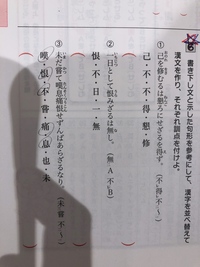 6 書き下し文と示した句形を参考にして、漢字を並べ替えて
漢文を作り、それぞれ訓点を付けよ。
① 己を修むるは懇ろにせざるを得ず。〔不得不〜〕
己・不・不・得・懇・修
② 一日として恨みざるは無し。〔無A不B〕
恨・不・日・一・無
③ 未だ嘗て嘆息痛恨せずんばあらざるなり。〔未嘗不〜〕
嘆・恨・不・嘗・痛・息・也・未